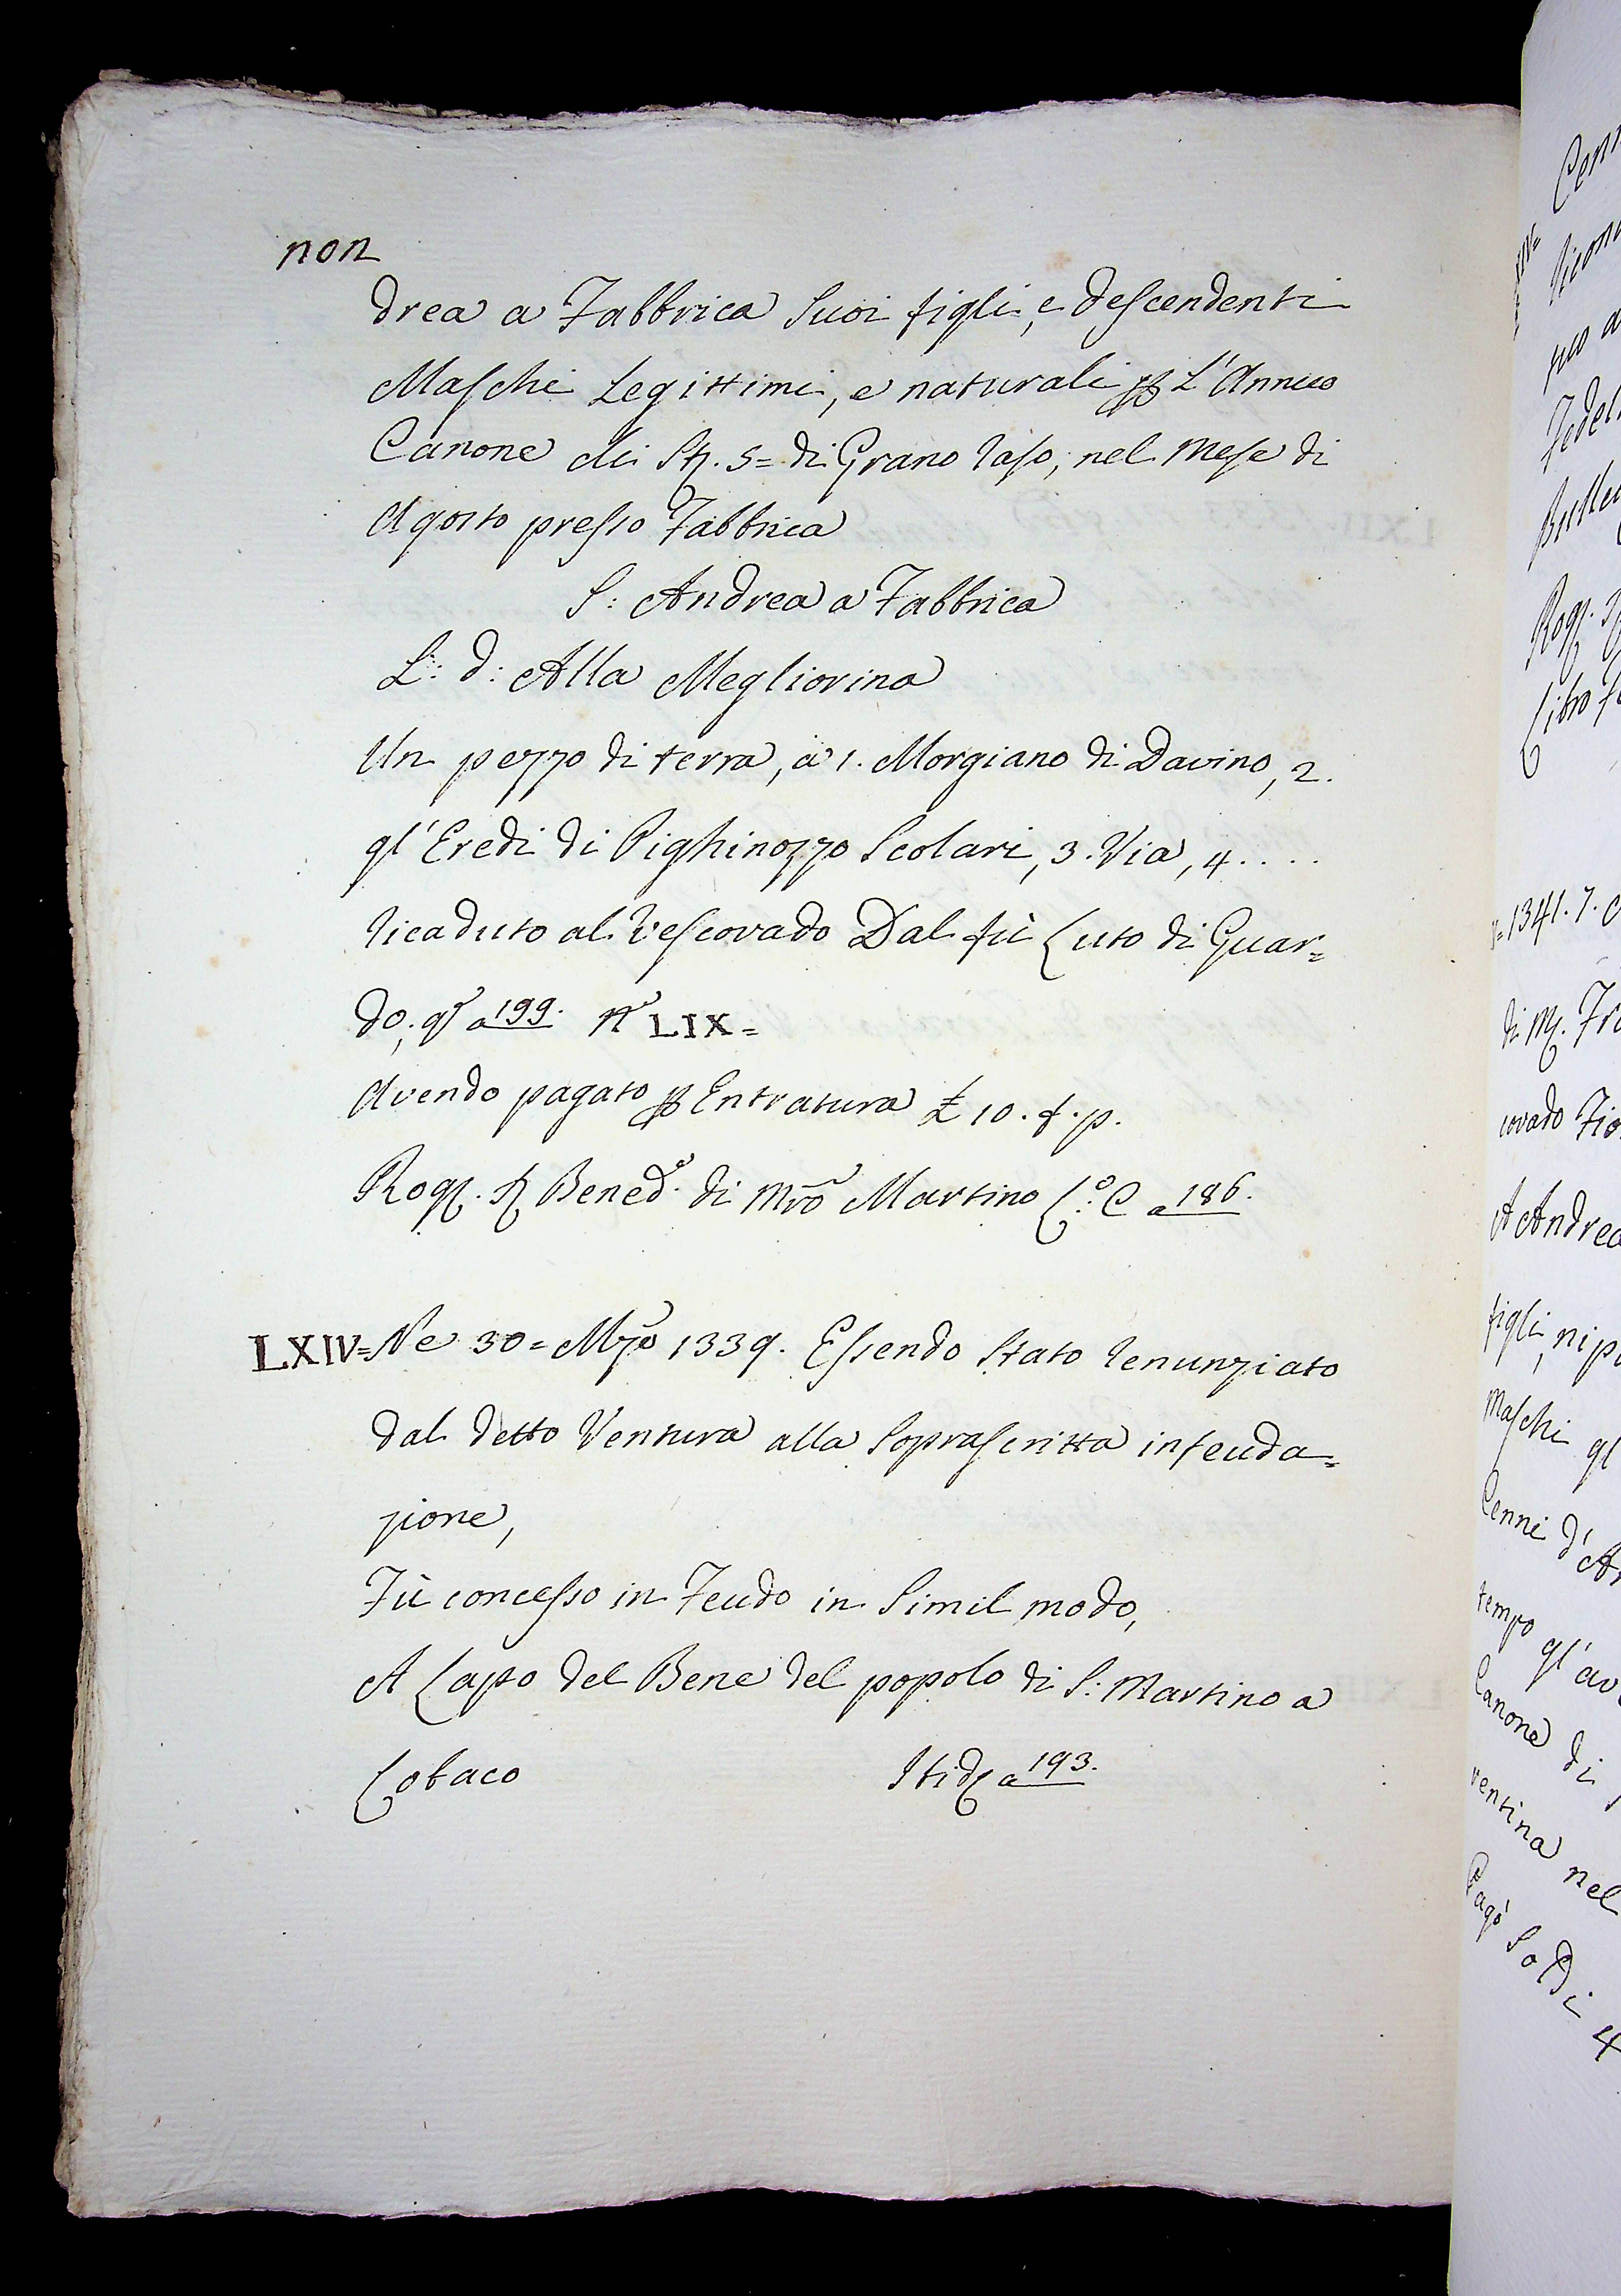 non
drea a Fabbrica Suoi figli, e descendenti
Maschi Legittimi, e naturali p L'Annuo
Canone di St. 5= di Grano raso, nel Mese di
Agosto presso Fabbrica
S: Andrea a Fabbrica
L: d: Alla Megliorina
Un pezzo di terra, a 1. Morgiano di Davino, 2.
gl'Eredi di Pighinozzo Scolari, 3. Via, 4....
ricaduto al Vescovado Dal fù Cuto di Guar=
do, a 199. N° LIX=
Avendo pagato p Entratura £ 10. f. p.
Rog. S Bened° di Mro Martino L:° C a 186.
LXIV= Ne 30= Mzo 1339. Essendo Stato renunziato
dal detto Ventura alla Soprascritta infeuda=
zione,
Fù concesso in Feudo in Simil modo,
A Lapo del Bene del popolo di S: Martino a
Lobaco a 193.
Cenn
Fedel
Bulle
Rog.
Libro
=1341. 7.
di M. Fr
covado Fio
A Andrea
figli, nip
Maschi gl
Cenni d'A
tempo gl'av
Canone di
rentina nel
Pagò Soldi 4